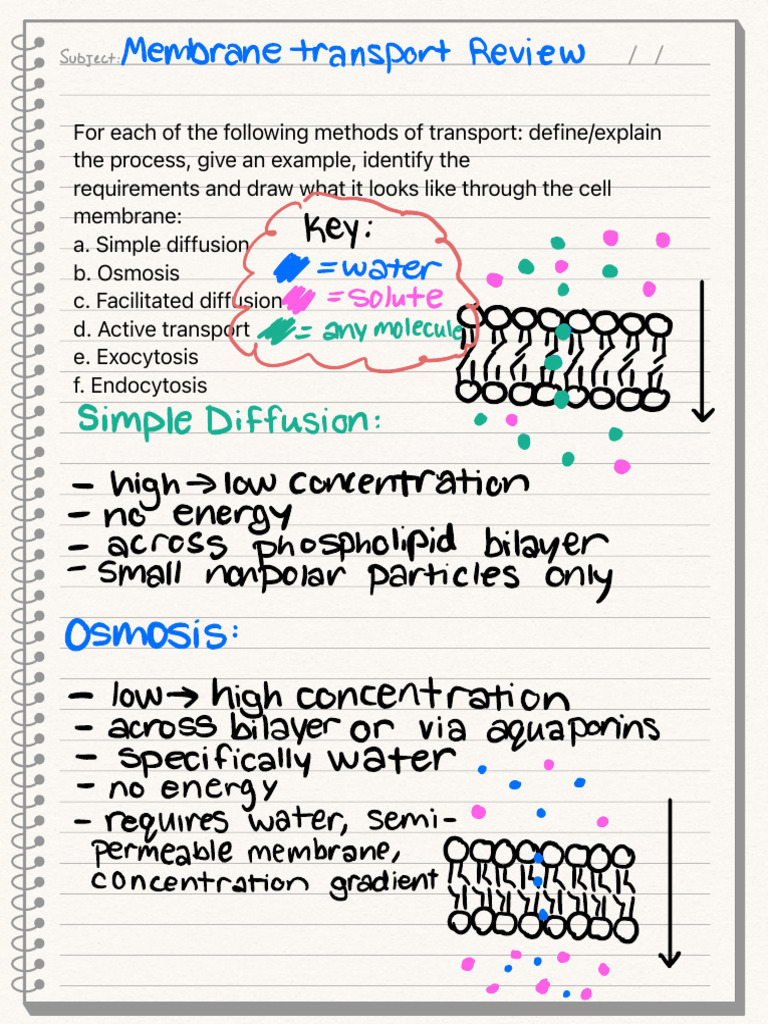 Subject: Membrane transport Review / /
For each of the following methods of transport: define/explain
the process, give an example, identify the
requirements and draw what it looks like through the cell
membrane:
a. Simple diffusion
b. Osmosis
c. Facilitated diffusion
d. Active transport
e. Exocytosis
f. Endocytosis
Key:
= water
= solute
= any molecule
Simple Diffusion:
- high → low concentration
- no energy
- across phospholipid bilayer
- small nonpolar particles only
Osmosis:
- low → high concentration
- across bilayer or via aquaporins
- specifically water
- no energy
- requires water, semi-
permeable membrane,
concentration gradient